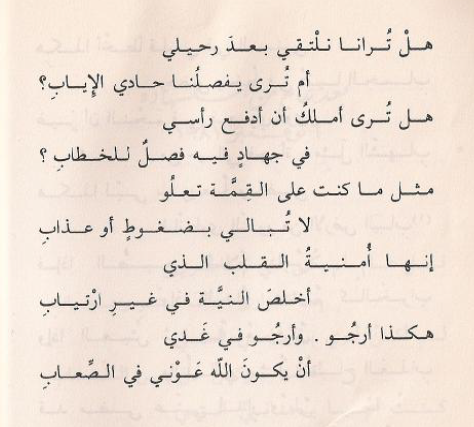 هلْ تُرانا نلْتقي بعدَ رحيلي
أم تُرى يفصلُنا حادي الإِيابِ؟
هل تُرى أملكُ أن أدفع رأسي
في جهادٍ فيه فصلٌ للخطابِ ؟
مثل ما كنت على القِمَّة تعلُو
لا تُبالي بضغوطٍ أو عذابِ
إنها أُمنيةُ القلب الذي
أخلصَ النيَّة في غيرِ ارْتيابِ
هكذا أرجُو . وأرجُو في غَدي
أنْ يكونَ اللّه عَوْني في الصِّعابِ